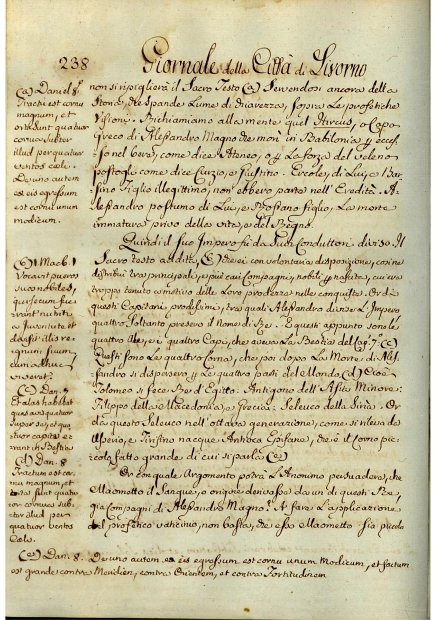 238 Giornale della Città di Livorno
(a) Daniel 8.
Fracti est cornu
magnum, et
orta sunt quatuor
cornua subter
illud per quatuor
ventos Coeli.
De uno autem
ex eis egressum
est cornu unum
modicum.
non si ripiglierà il Sacro Testo (a) Servendosi ancora della
Storia, che spande Lume di chiarezza, sopra le profetiche
Visioni. Richiamiamo alla mente quel Hircus, o Capo
Greco di Alessandro Magno che morì in Babilonia, ecces-
so nel bere, come dice Ateneo, o la forza del veleno
come dice Curzio, e Giustino. Ercole, di Lui, e Bar-
sino Figlio illegittimo, non ebbero parte nell' Eredità. A-
lessandro postumo di Lui, e figlio, La morte
immatura privò della vita, e del Regno.
(b) Mach. 1
Vocavit pueros
suos nobiles,
qui secum fue
rant nutriti
a Juventute et
divisit illis re
gnum suum
cum adhuc
viveret
Quindi il suo Impero fù da suoi Conduttori diviso. Il
Sacro testo addita, (b) che ei con volontaria disposizione,
distribuì tra principali, e più cari Compagni, nobili nascita, cui era
troppo tenuto a motivo delle Loro prodezze nelle conquiste. Or di
questi Capitani prodissimi, tra quali Alessandro divise l'Impero
quattro soltanto presero il nome di Re. E questi appunto sono le
quattro ale, e i quattro Capi, che aveva La Bestia del Cap. 7. (c)
Questi sono Le quattro Corna, che poi dopo La Morte di Ales-
sandro si dispersero Le quattro parti del Mondo, (d) Cioè
Tolomeo si fece Re d'Egitto: Antigono dell'Asia Minore:
Filippo della Macedonia, e Grecia: Seleuco della Siria. Or
da questo Seleuco nell'ottava generazione, come si rileva da
e Tirino nacque Antioco Epifane, che è il Corno pic-
ciolo, fatto grande di cui si parla (e)
(c) Dan. 7
Et alas habebat
quasi avis quatuor
super se, et qua
tuor capita e
rant in Bestia
(d) Dan. 8
Fractum est cor
nu magnum, et
orta sunt quatu
or cornua sub
ter illud per
quatuor ventos
Coeli.
Or con quale Argomento potrà L'Anonimo persuadere, che
Maometto il Sangue, o origine derivasse da un di questi Re,
già Compagni di Alessandro Magno? A fare L'applicazione
del profetico vaticinio, non basta, che esso Maometto sia piccolo
(e) Dan. 8. De uno autem ex eis egressum est cornu unum Modicum, et factum
est grande contra Meridiem, contra Orientem, et contra Fortitudinem